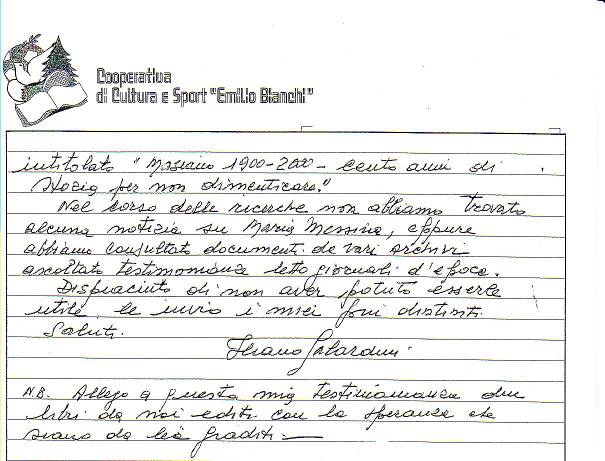 Cooperativa
di Cultura e Sport "Emilio Bianchi"
intitolato "Masiano 1900-2000 - cento anni di
storia per non dimenticare."
Nel corso delle ricerche non abbiamo trovato
alcuna notizia su Maria Messina, eppure
abbiamo consultato documenti da vari archivi
ascoltato testimonianze letto giornali d'epoca.
Dispiaciuto di non aver potuto esserle
utile, le invio i miei più distinti
Saluti.
N.B. Allego a questa mia testimonianza due
libri da noi editi con la speranza che
siano da lei graditi